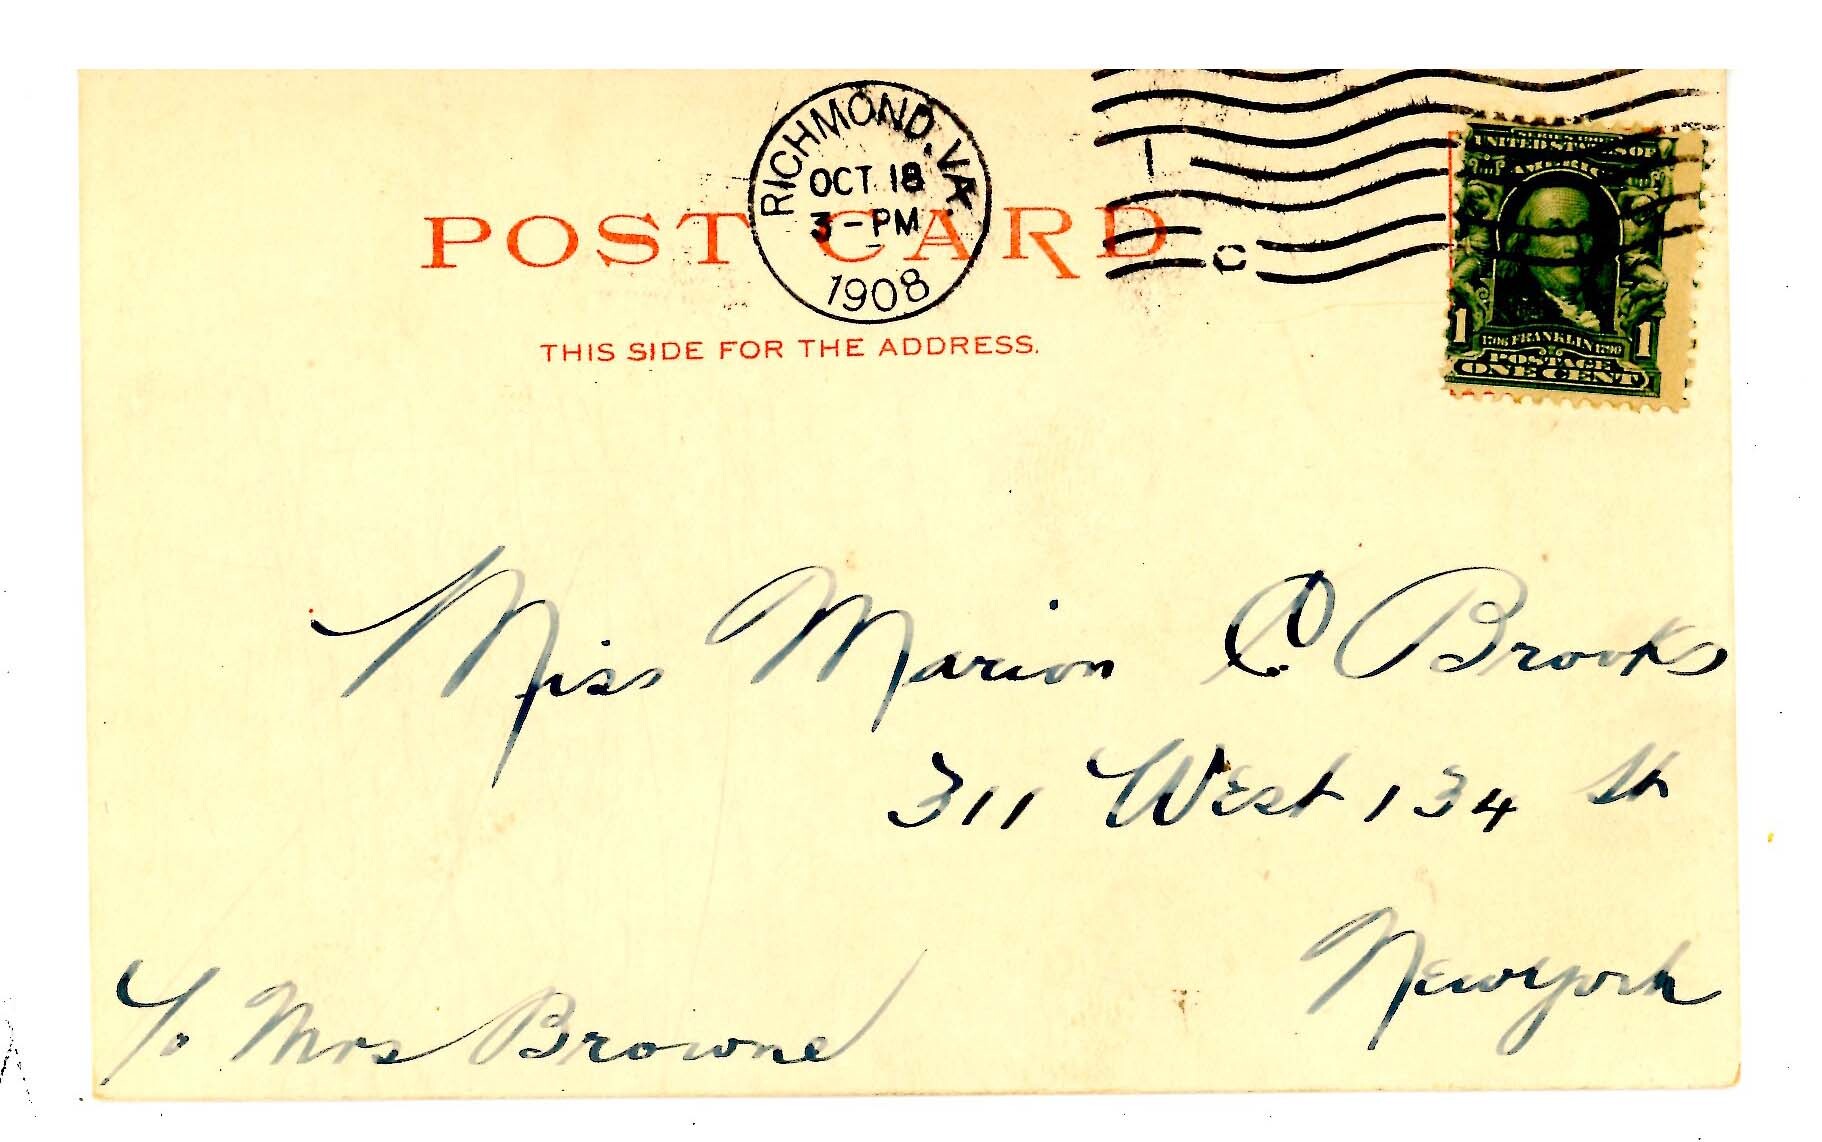 RICHMOND, VA.
OCT 18
3-PM
1908
POST CARD
THIS SIDE FOR THE ADDRESS.
1 C
UNITED STATES OF
AMERICA
1 1706 FRANKLIN 1790 1
POSTAGE
ONE CENT
Miss Marion C Brooks
311 West 134 St
New York
℅ Mrs Browne